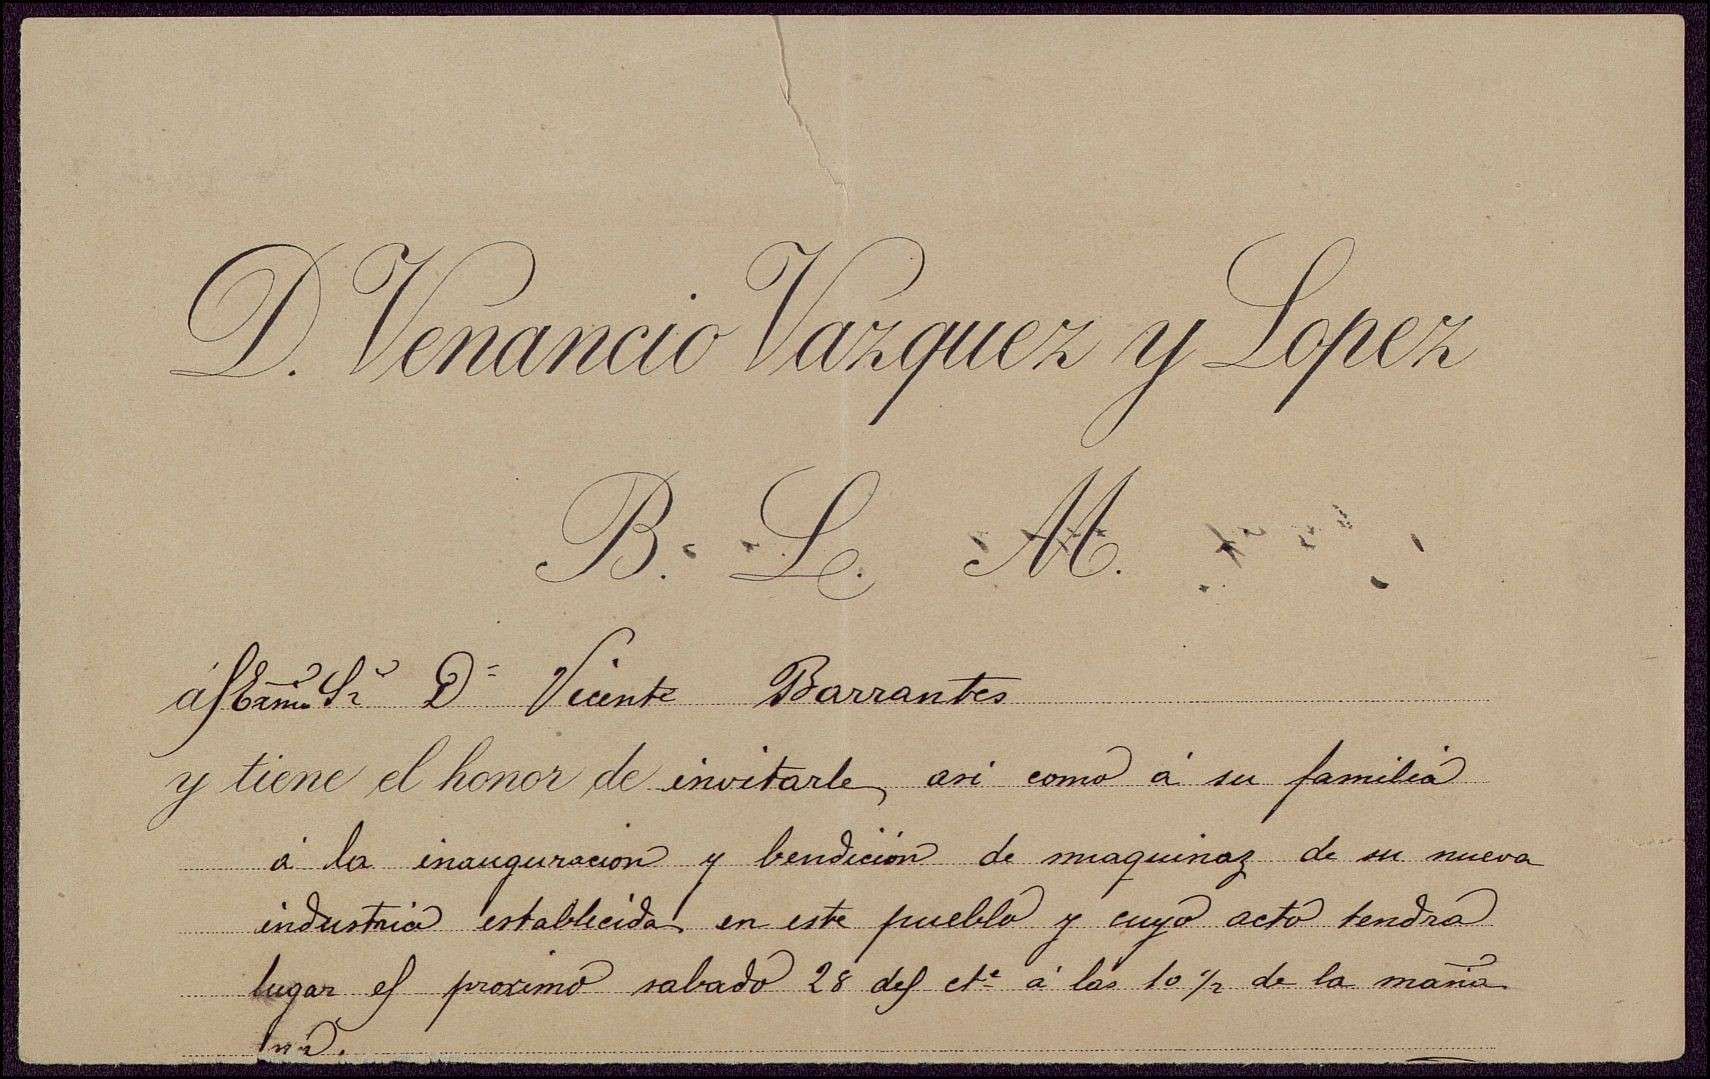 D. Venancio Vazquez y Lopez
B. L. M.
ál Exmo Sr. D.n Vicente Barrantes
y tiene el honor de invitarle, asi como á su familia
á la inauguracion y bendición de maquinas de su nueva
industria establecida en este pueblo y cuyo acto tendra
lugar el proximo sabado 28 del cte á las 10 ½ de la maña
na.